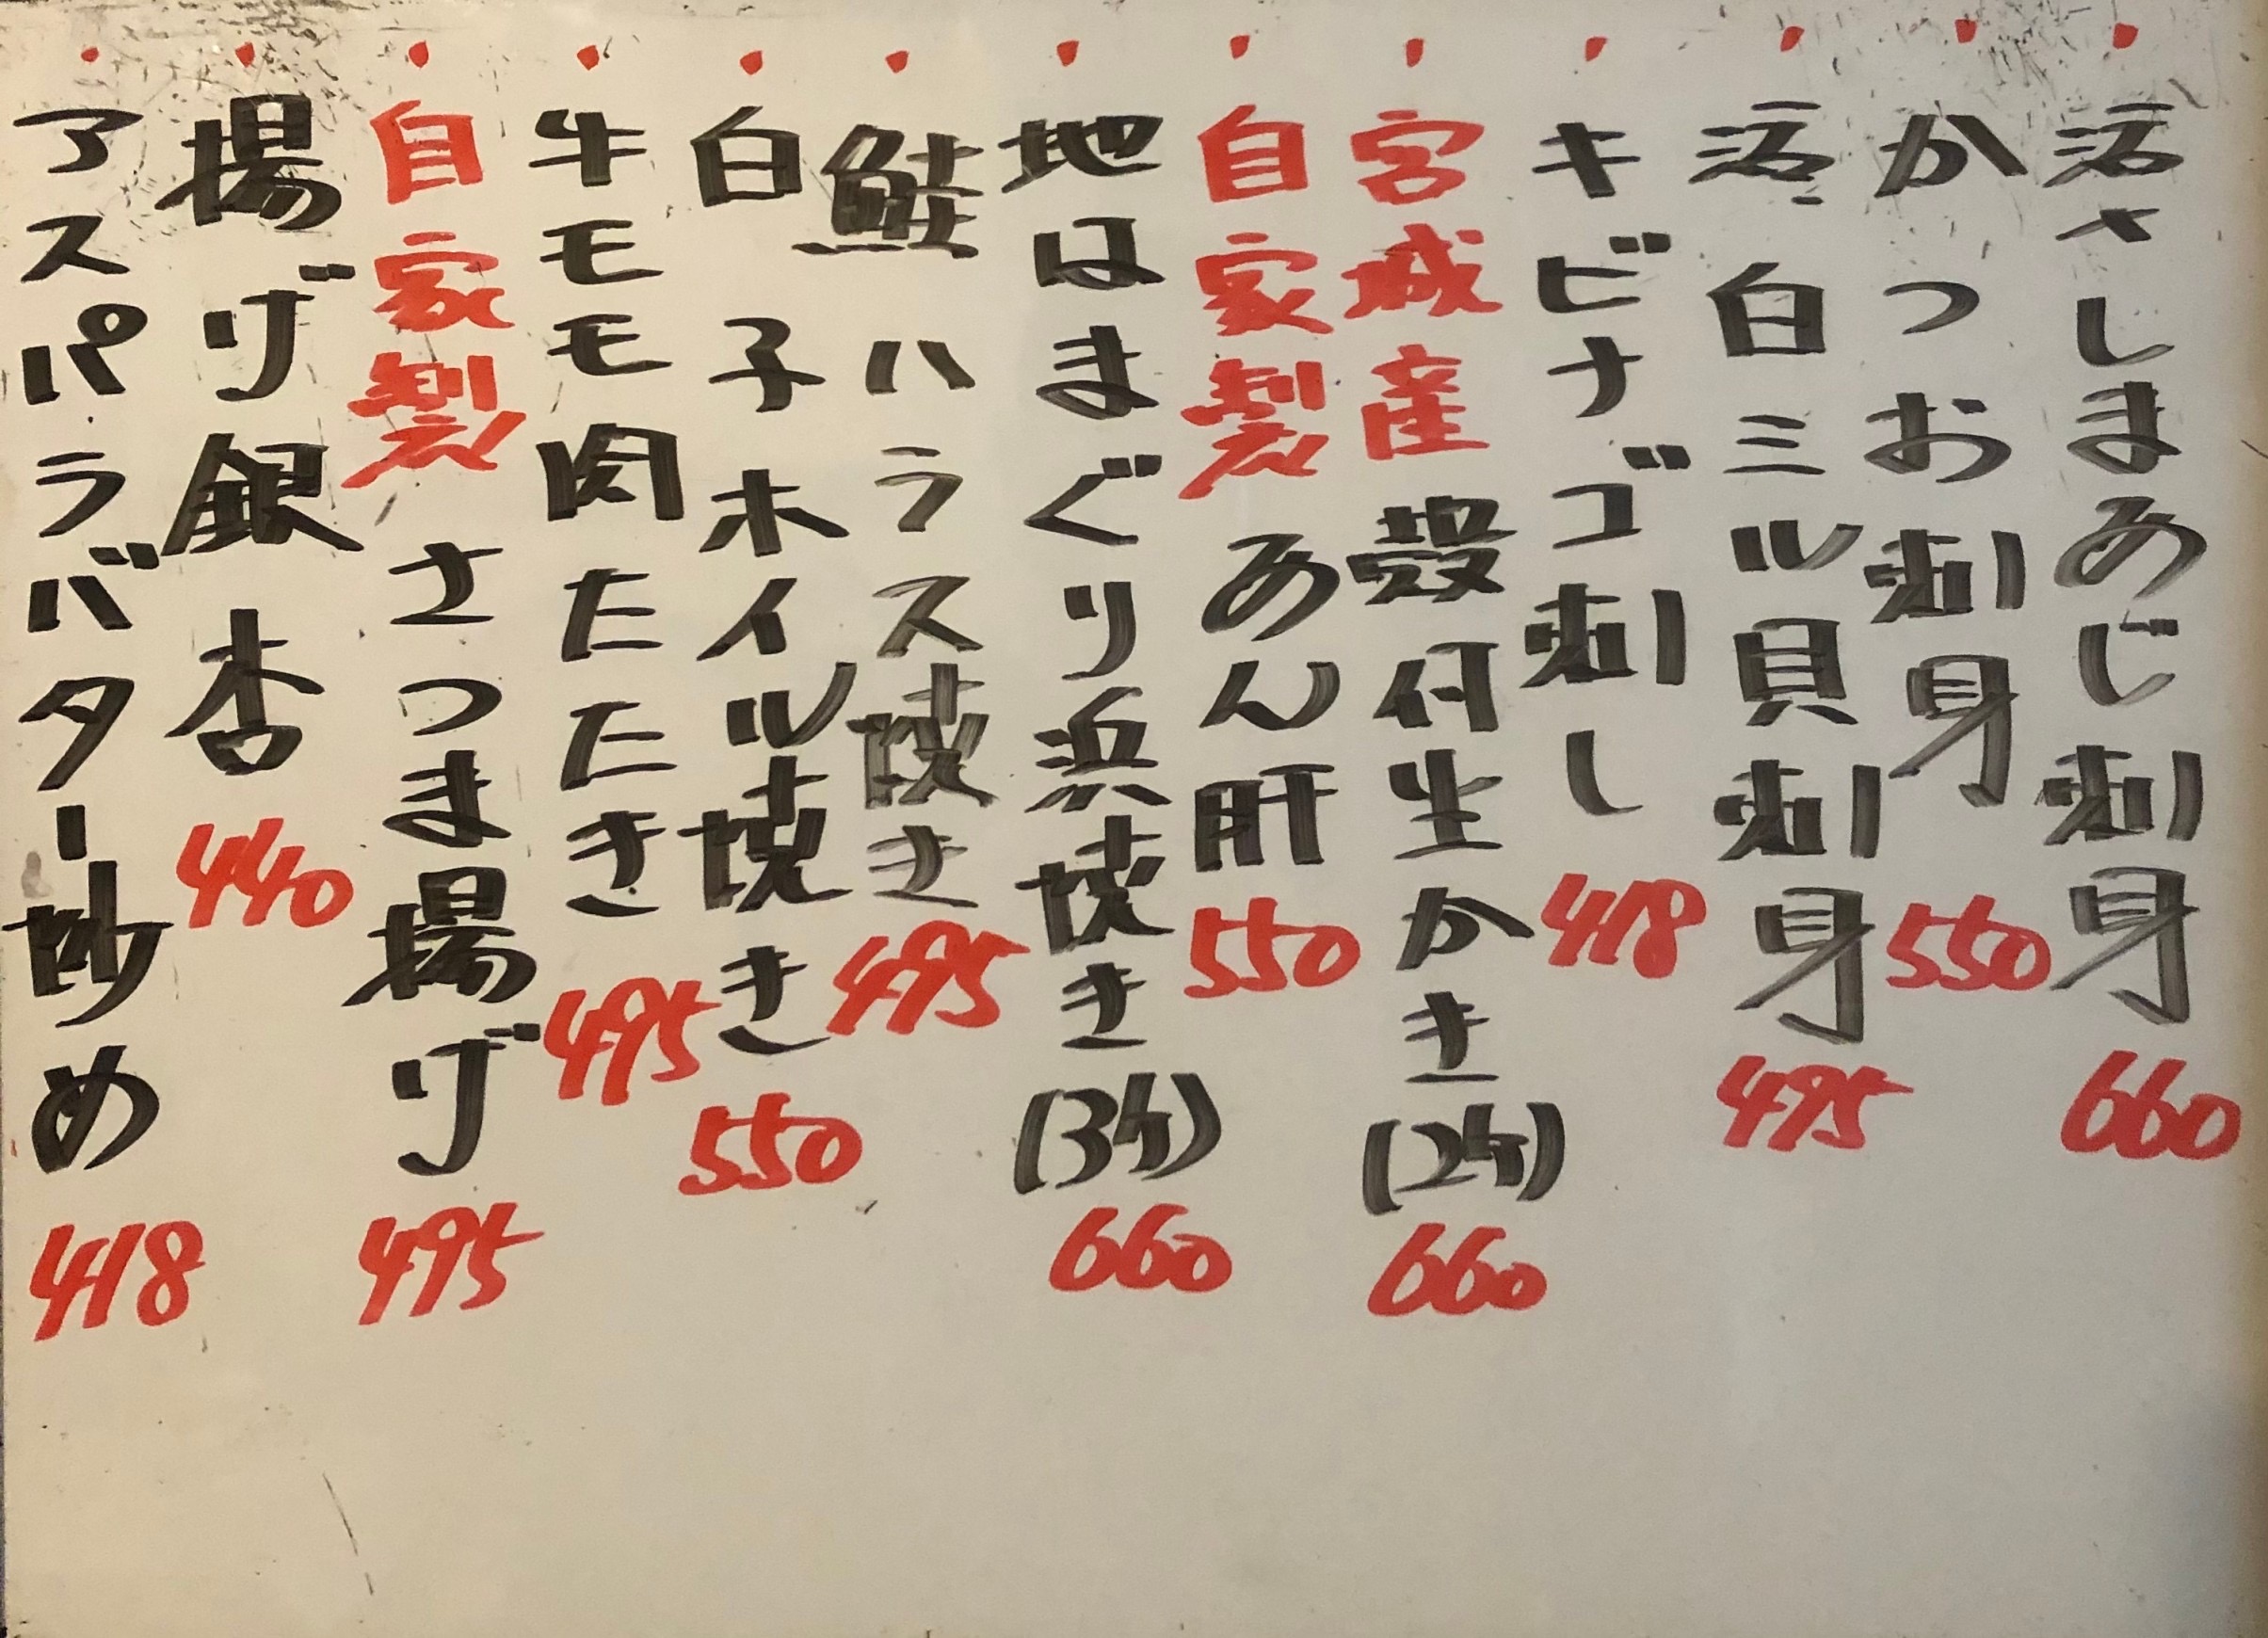 活〆しまあじ刺身 660
かつお刺身 550
活白ミル貝刺身 495
キビナゴ刺し 418
宮城産殻付生かき(2ケ) 660
自家製あん肝 550
地はまぐり浜焼き(3ケ) 660
鮭ハラス焼き 495
白子ホイル焼き 550
牛モモ肉たたき 495
自家製さつま揚げ 495
揚げ銀杏 440
アスパラバター炒め 418